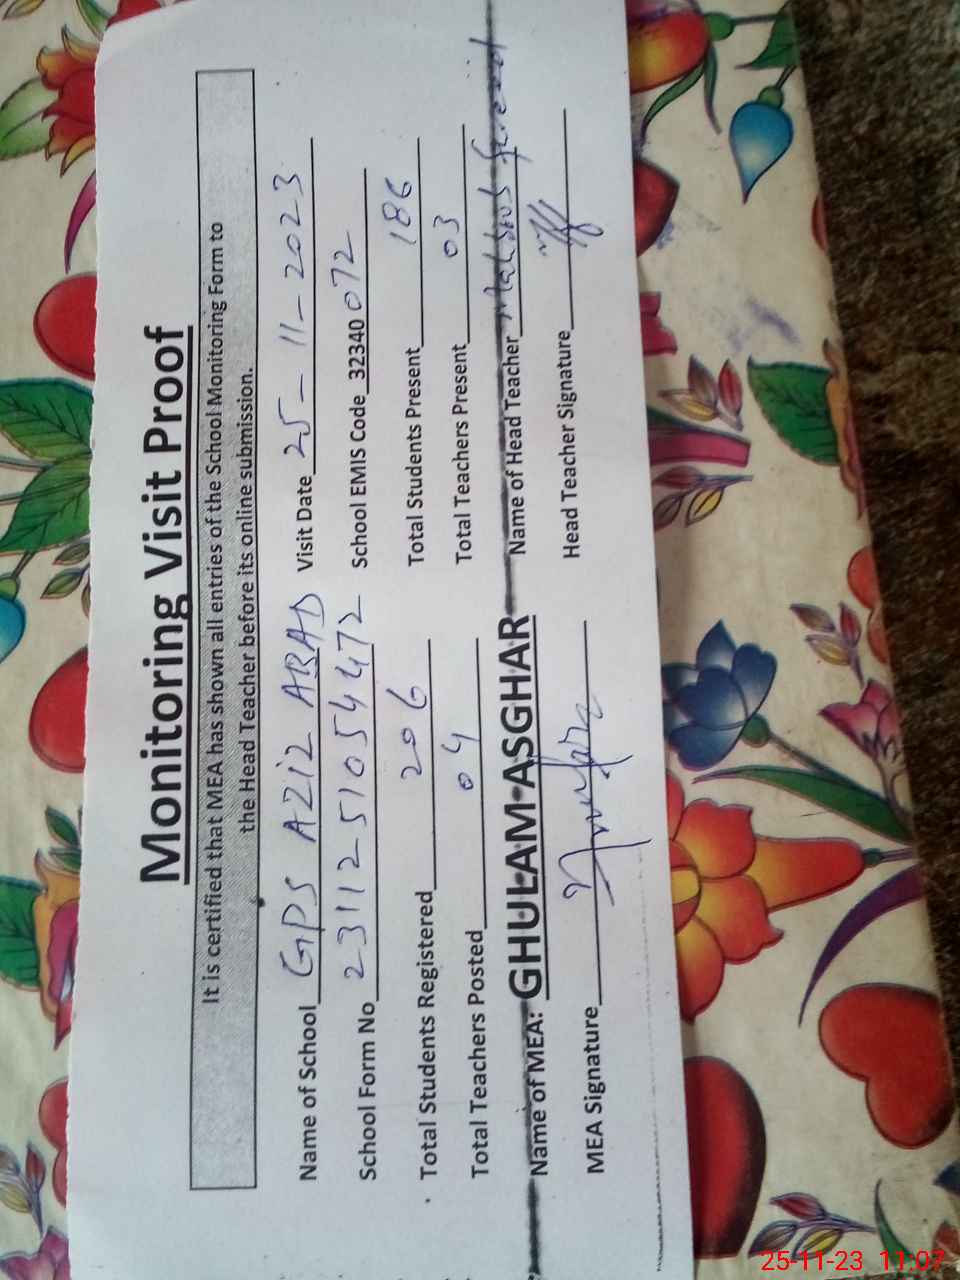 Monitoring Visit Proof
It is certified that MEA has shown all entries of the School Monitoring Form to
the Head Teacher before its online submission.
Name of School GPS AZIZ ABAD Visit Date 25-11-2023
School Form No 2311251054472 School EMIS Code 32340072
Total Students Registered 206 Total Students Present 186
Total Teachers Posted 04 Total Teachers Present 03
Name of MEA: GHULAM ASGHAR Name of Head Teacher
MEA Signature Head Teacher Signature
25-11-23 11:07